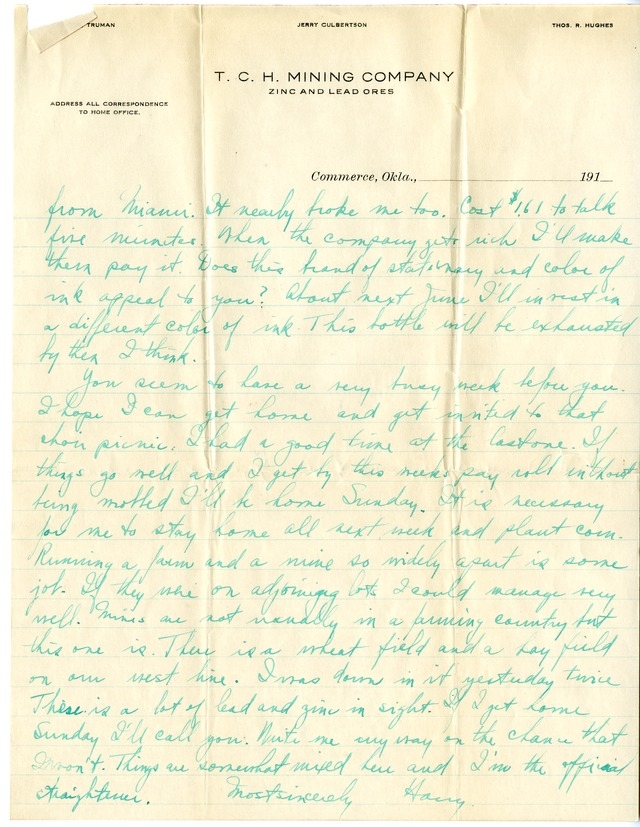 TRUMAN JERRY CULBERTSON THOS. R. HUGHES
T. C. H. MINING COMPANY
ZINC AND LEAD ORES
ADDRESS ALL CORRESPONDENCE
TO HOME OFFICE.
Commerce, Okla., 191
from Miami. It nearly broke me too. Cost $1.61 to talk
five minutes. When the company gets rich I'll make
them pay it. Does this brand of stationary and color of
ink appeal to you? About next June I'll invest in
a different color of ink. This bottle will be exhausted
by then I think.
You seem to have a very busy week before you.
I hope I can get home and get invited to that
picnic. I had a good time at the last one. If
things go well and I get by this weeks pay roll without
being mobbed I'll be home Sunday. It is necessary
for me to stay home all next week and plant corn.
Running a farm and a mine so widely apart is some
job. If they were on adjoining lots I could manage very
well. Mines are not usually in a farming country but
this one is. There is a wheat field and a hay field
on our west line. I was down in it yesterday twice
There is a lot of lead and zinc in sight. If I get home
Sunday I'll call you. Write me anyway on the chance that
I won't. Things are somewhat mixed here and I'm the official
straightener. Most sincerely Harry.